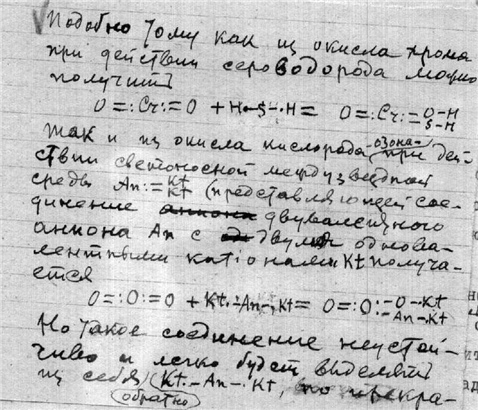 Подобно тому как из окисла хрома
при действии сероводорода можно
получить
O=:Cr:=O + H-S-H = O=:Cr:=O-H
S-H
так и из окисла кислорода-озона-при дей-
ствии светоносной междузвездной
среды An:=Kt
Kt (представляющей сое-
динение двувалентного
аниона An с двумя однова-
лентными катионами Kt получа-
ется
O=:O:=O + Kt.-An-.Kt = O=:O:-O-Kt
-An-Kt
Но такое соединение неустой-
чиво и легко будет выделять
из себя (Kt.-An-.Kt, по прекра-
(обратно)